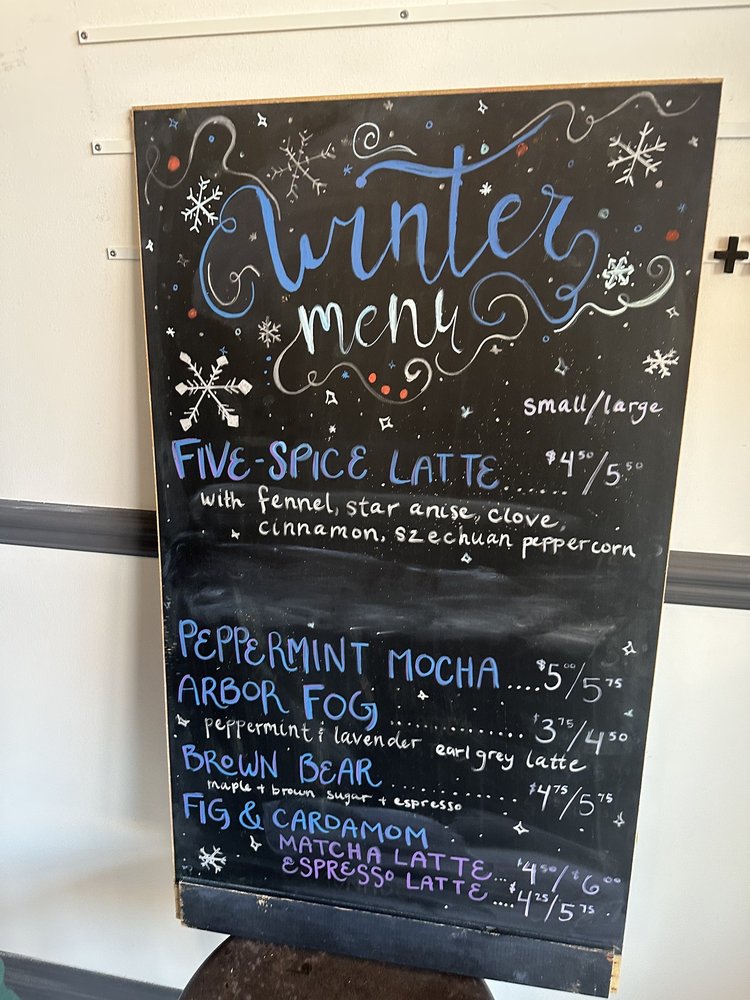 winter
menu
small/large
FIVE-SPICE LATTE....... $4 50/5 50
with fennel, star anise, clove,
cinnamon, szechuan peppercorn
PEPPERMINT MOCHA.... $5 00/5 75
ARBOR FOG.............. $3 75/4 50
peppermint & lavender earl grey latte
BROWN BEAR.............. $4 75/5 75
maple + brown sugar + espresso
FIG & CARDAMOM
MATCHA LATTE... $4 50/$6 00
ESPRESSO LATTE.... $4 25/5 75